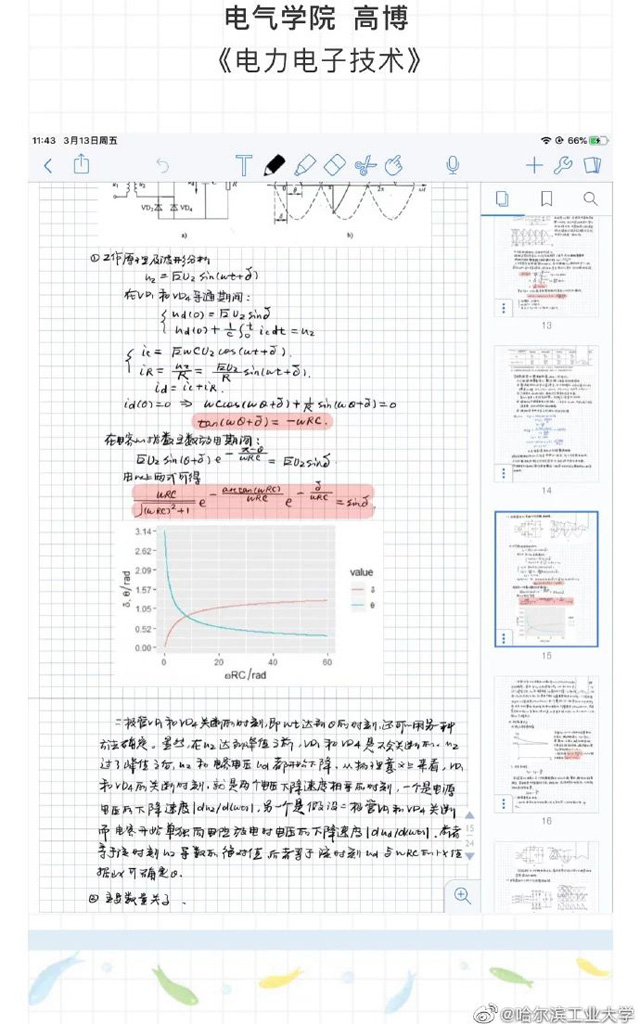 电气学院 高博
《电力电子技术》
11:43 3月13日周五
66%
T
VD₃ VD₄
a)
b)
① 工作原理及波形分析
u₂ = √2U₂ sin(ωt+δ)
在VD₁和VD₄导通期间：
ud(0) = √2U₂ sinδ
ud(0) + 1/C ∫₀ᵗ ic dt = u₂
ic = √2ωCU₂ cos(ωt+δ).
iR = u₂/R = √2U₂/R sin(ωt+δ).
id = ic+iR.
id(θ)=0 ⇒ ωC cos(ωθ+δ) + 1/R sin(ωθ+δ) = 0
tan(ωθ+δ) = -ωRC.
√2U₂ sin(θ+δ) e^(-(π-θ)/ωRC) = √2U₂ sinδ.
ωRC/√((ωRC)²+1) e^(-arctan(ωRC)/ωRC) e^(-δ/ωRC) = sinδ.
3.14
2.62
2.09
1.57
1.05
0.52
0.00
δ, θ/rad
0 20 40 60
ωRC/rad
value
δ
θ
二极管VD₁和VD₄关断的时刻,即ωt达到θ的时刻,还可用另一种
方法确定。显然,在u₂达到峰值之前,VD₁和VD₄是不会关断的。u₂
过了峰值之后,u₂和电容电压ud都开始下降。从物理意义上来看,VD₁
和VD₄的关断时刻,就是两个电压下降速度相等的时刻,一个是电源
电压的下降速度|du₂/d(ωt)|,另一个是假设二极管VD₁和VD₄关断
而电容开始单独向电阻放电时电压的下降速度|dud/d(ωt)|。前者
等于该时刻u₂导数的绝对值,后者等于该时刻ud与ωRC的比值
据此可确定θ.
② 主要数量关系.
13
14
15
16
15
24
@哈尔滨工业大学